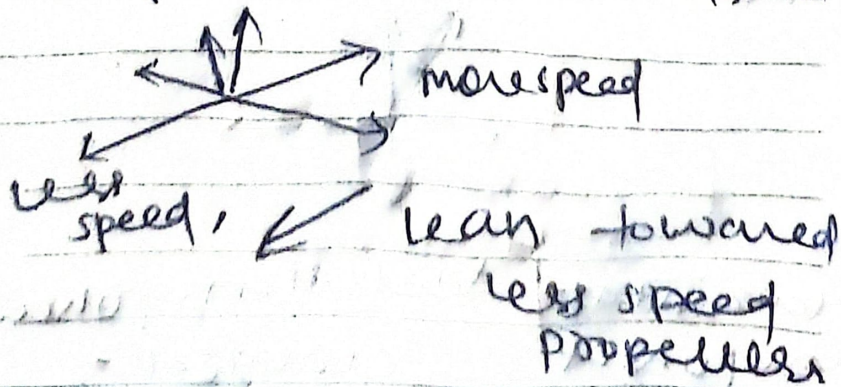 more speed
less
speed,
lean toward
less speed
propellers